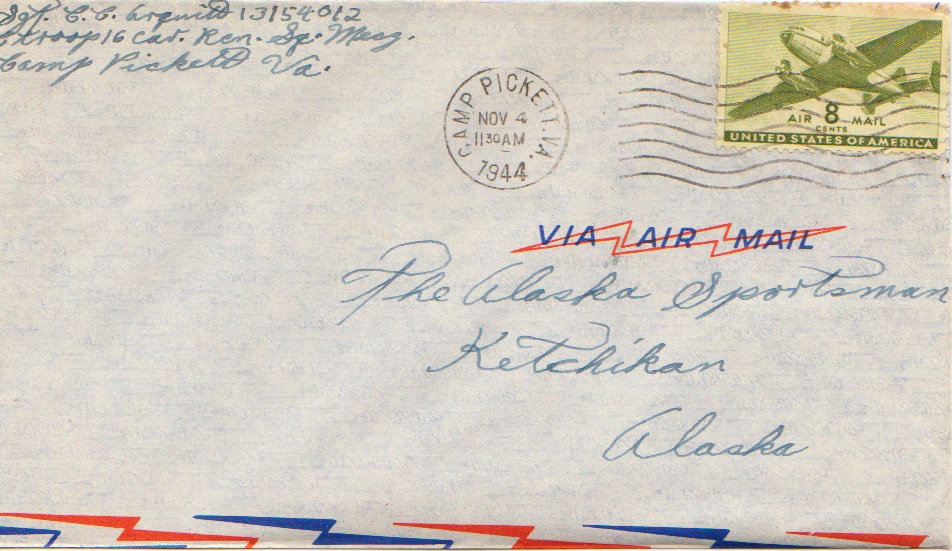 Sgt. C. C. Arquitt 13154012
C Troop 16 Cav. Rcn. Sq. Mecz.
Camp Pickett Va.
CAMP PICKETT. VA.
NOV 4
1130AM
1944
AIR 8 MAIL
CENTS
UNITED STATES OF AMERICA
VIA AIR MAIL
The Alaska Sportsman
Ketchikan
Alaska